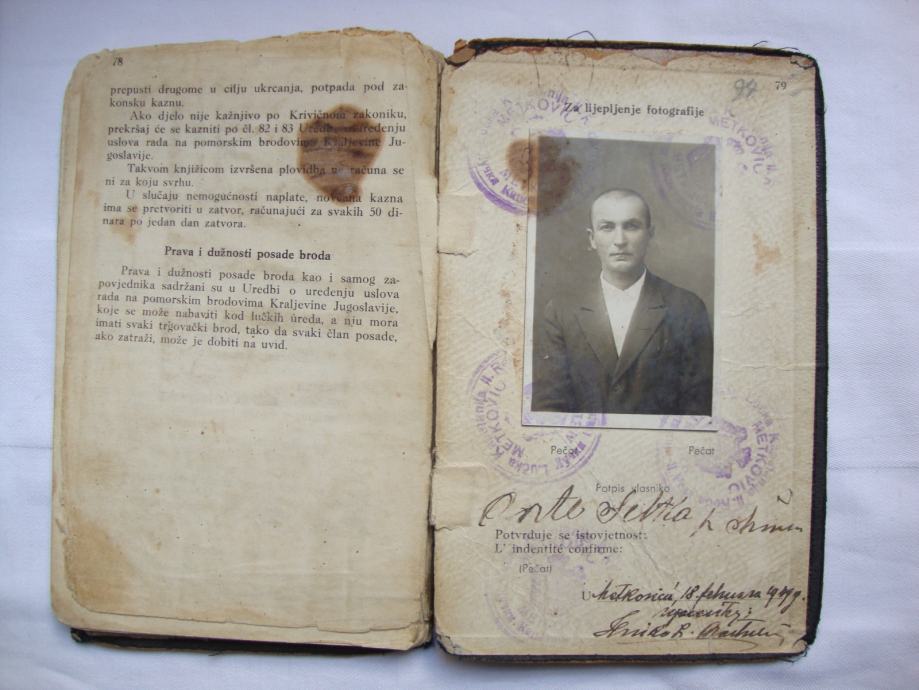 78
prepusti drugome u cilju ukrcanja, potpada pod za-
konsku kaznu.
Ako djelo nije kažnjivo po Krivičnom zakoniku,
prekršaj će se kazniti po čl. 82 i 83 Uredbe o uređenju
uslova rada na pomorskim brodovima Kraljevine Ju-
goslavije.
Takvom knjižicom izvršena plovidba ne računa se
ni za koju svrhu.
U slučaju nemogućnosti naplate, novčana kazna
ima se pretvoriti u zatvor, računajući za svakih 50 di-
nara po jedan dan zatvora.
Prava i dužnosti posade broda
Prava i dužnosti posade broda kao i samog za-
povjednika sadržani su u Uredbi o uređenju uslova
rada na pomorskim brodovima Kraljevine Jugoslavije,
koje se može nabaviti kod lučkih ureda, a nju mora
imati svaki trgovački brod, tako da svaki član posade,
ako zatraži, može je dobiti na uvid.
94 79
Za lijepljenje fotografije
METKOVIĆ
METKOVIĆ
METKOVIĆ
METKOVIĆ
Pečat Pečat
Potpis vlasnika
Potvrđuje se istovjetnost:
L' indentité confirme:
(Pečat)
U Metkoviću, 18. februara